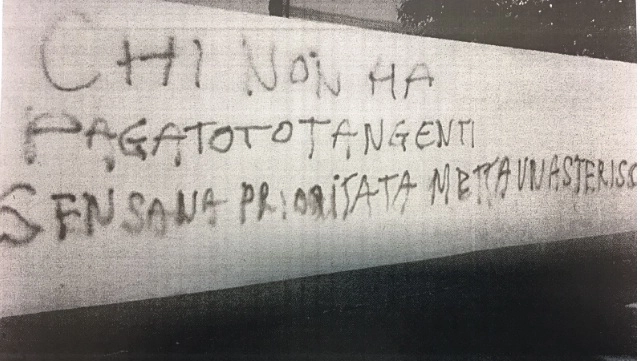 CHI NON HA
PAGATOTOTANGENTI
SENSANA PRIORITATA METTAUNASTERISCO